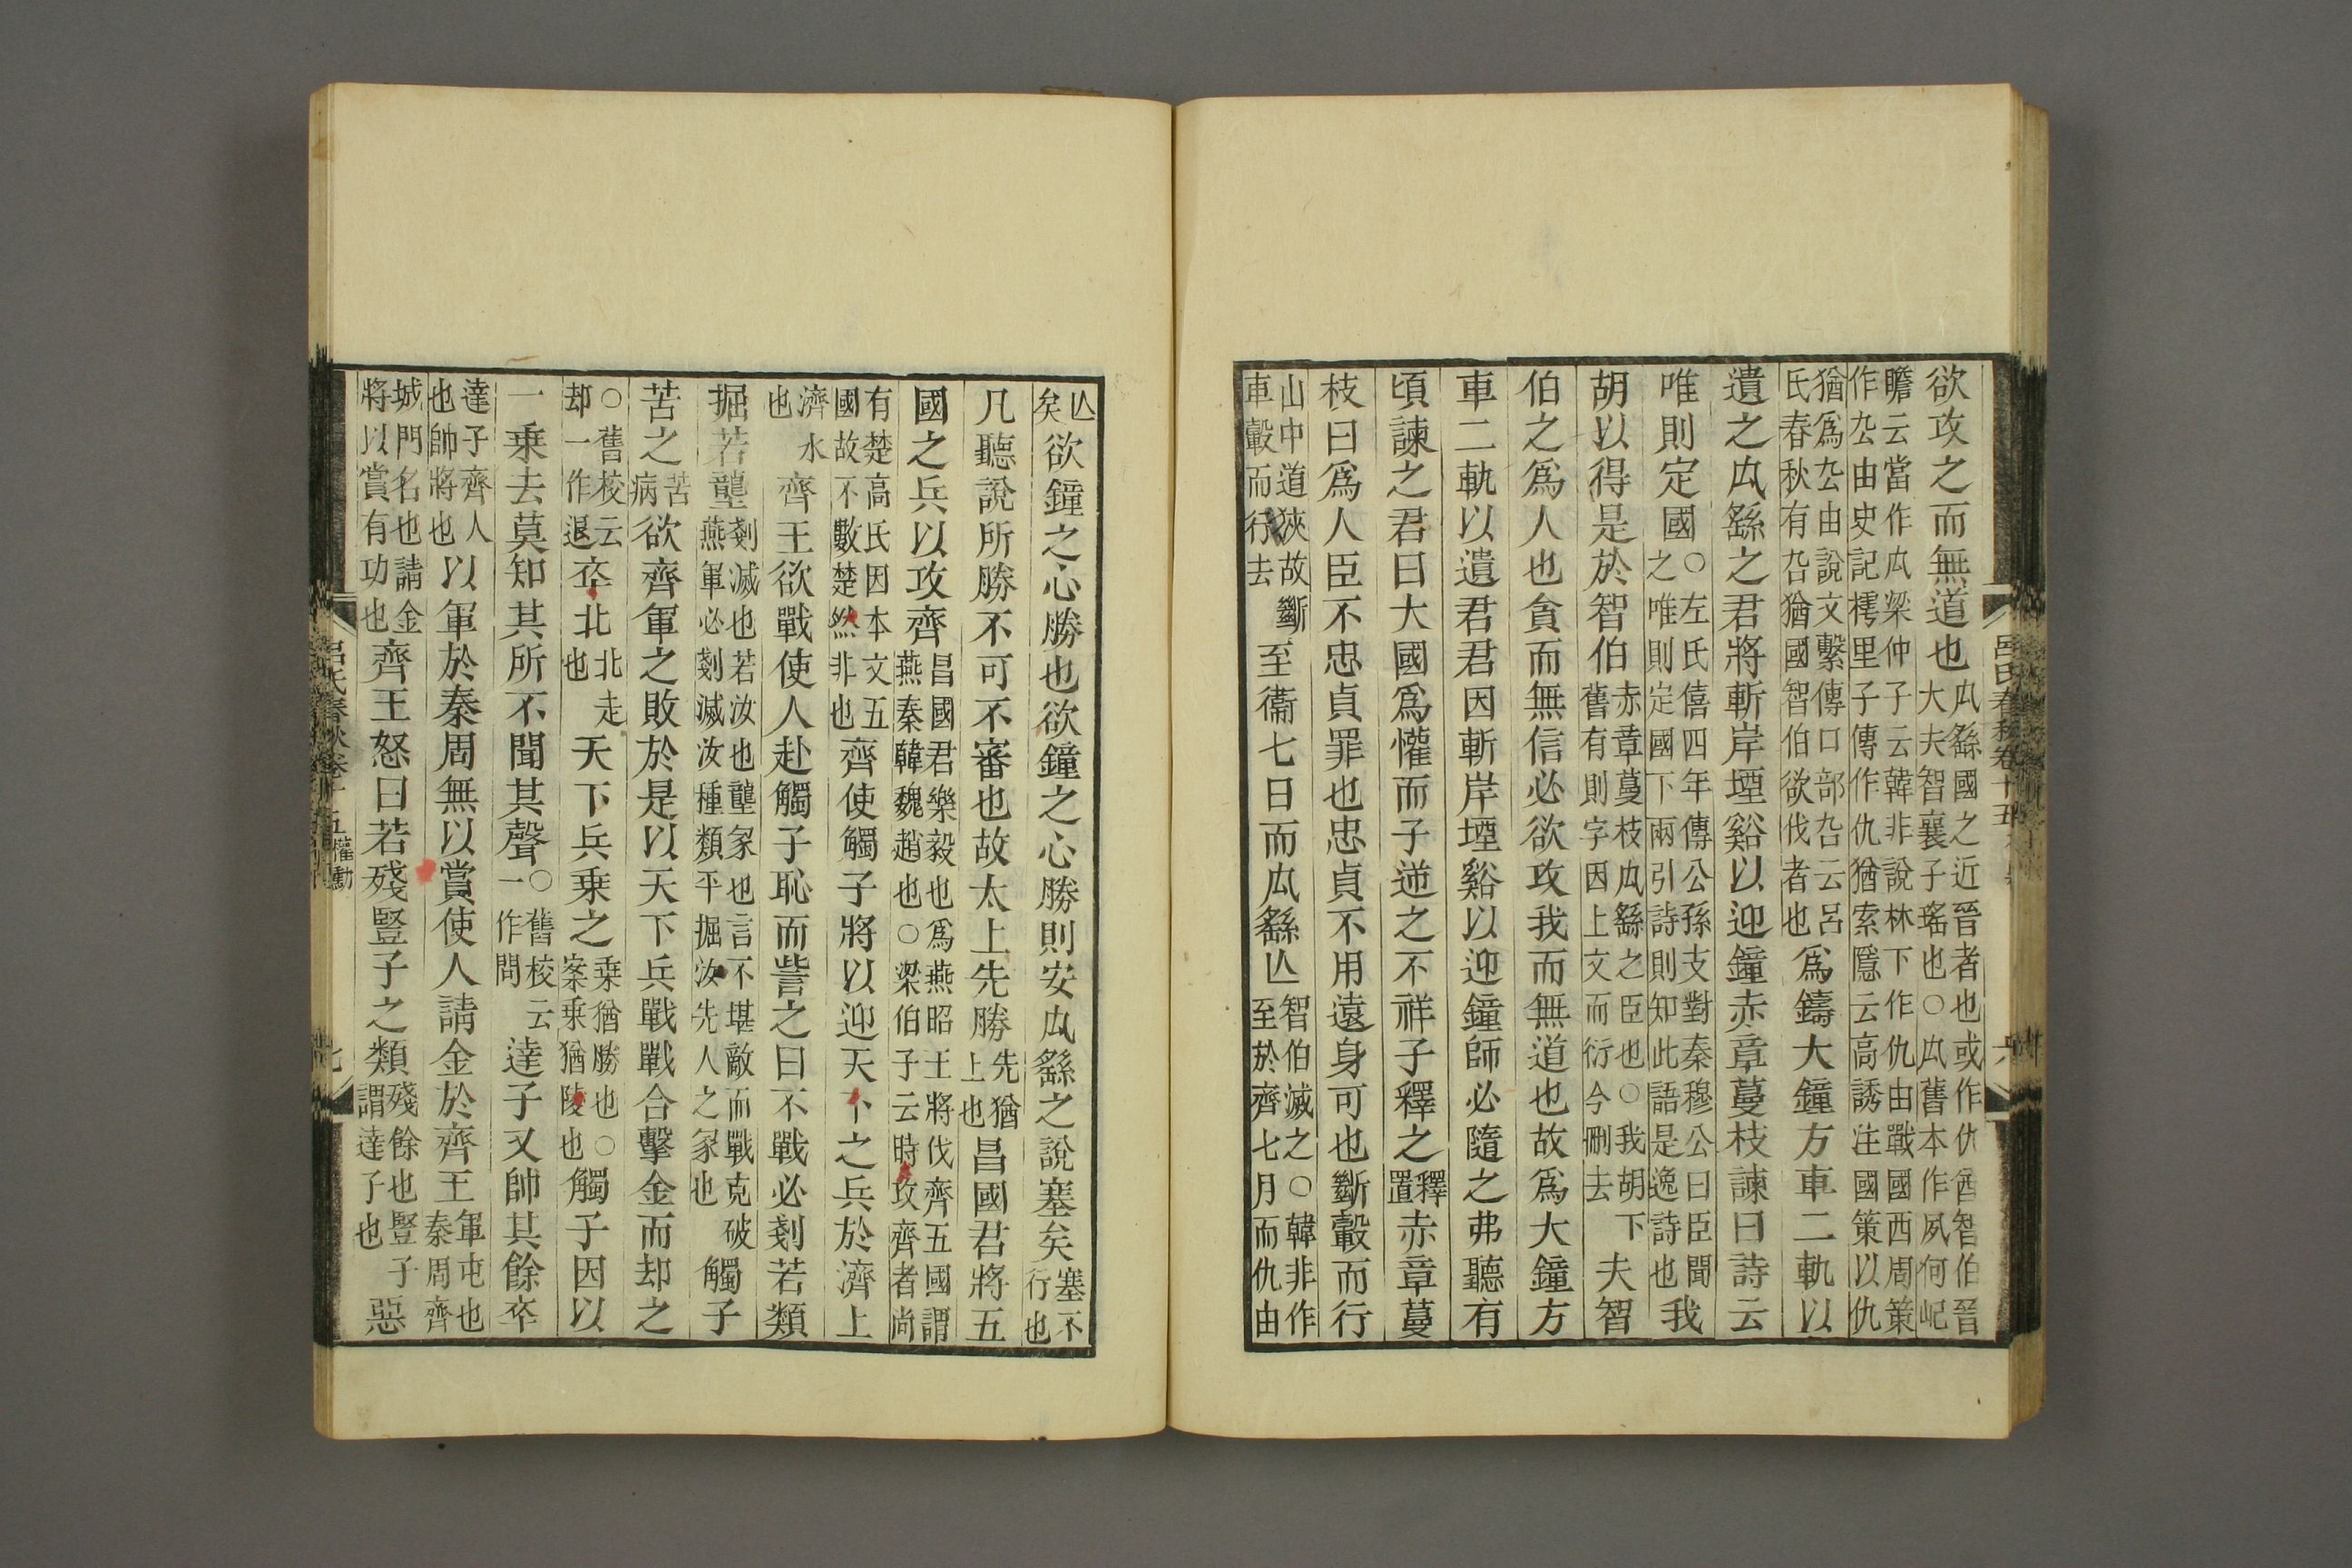 欲攻之而無道也𠆩繇國之近晉者也或作仇酋智伯晉大夫智襄子瑤也○𠆩舊本作夙何屺
瞻云當作𠆩梁仲子云韓非說林下作仇由戰國西周策作厹由史記樗里子傳作仇猶索隱云高誘注國策以仇
猶爲厹由說文繫傳口部叴云呂氏春秋有叴猶國智伯欲伐者也爲鑄大鐘方車二軌以
遺之𠆩繇之君將斬岸堙谿以迎鐘赤章蔓枝諫曰詩云
唯則定國○左氏僖四年傳公孫支對秦穆公曰臣聞之唯則定國下兩引詩則知此語是逸詩也我
胡以得是於智伯赤章蔓枝𠆩繇之臣也○我胡下舊有則字因上文而衍今刪去夫智
伯之爲人也貪而無信必欲攻我而無道也故爲大鐘方
車二軌以遺君君因斬岸堙谿以迎鐘師必隨之弗聽有
頃諫之君曰大國爲懽而子逆之不祥子釋之釋置赤章蔓
枝曰爲人臣不忠貞罪也忠貞不用遠身可也斷轂而行
山中道狹故斷車轂而行去至衞七日而𠆩繇亾智伯滅之○韓非作至於齊七月而仇由
亾矣欲鐘之心勝也欲鐘之心勝則安𠆩繇之說塞矣塞不行也
凡聽說所勝不可不審也故太上先勝先猶上也昌國君將五
國之兵以攻齊昌國君樂毅也爲燕昭王將伐齊五國謂燕秦韓魏趙也○梁伯子云時攻齊者尚
有楚高氏因本文五國故不數楚然非也齊使觸子將以迎天下之兵於濟上
濟水也齊王欲戰使人赴觸子恥而訾之曰不戰必剗若類
掘若壟剗滅也若汝也壟冢也言不堪敵而戰克破燕軍必剗滅汝種類平掘汝先人之冢也觸子
苦之苦病欲齊軍之敗於是以天下兵戰戰合擊金而却之
○舊校云却一作退卒北北走也天下兵乗之乗猶勝也○案乗猶陵也觸子因以
一乗去莫知其所不聞其聲○舊校云一作問達子又帥其餘卒
達子齊人也帥將也以軍於秦周無以賞使人請金於齊王軍屯也秦周齊
城門名也請金將以賞有功也齊王怒曰若殘豎子之類殘餘也豎子謂達子也惡
呂氏春秋卷十五
六
呂氏春秋卷十五 權勳
七